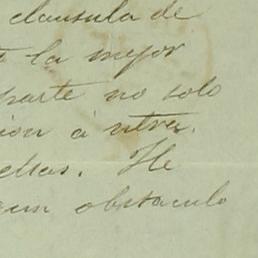 clausula de
la mejor
parte no solo
ion á ntra.
ellas. He
gun obstaculo